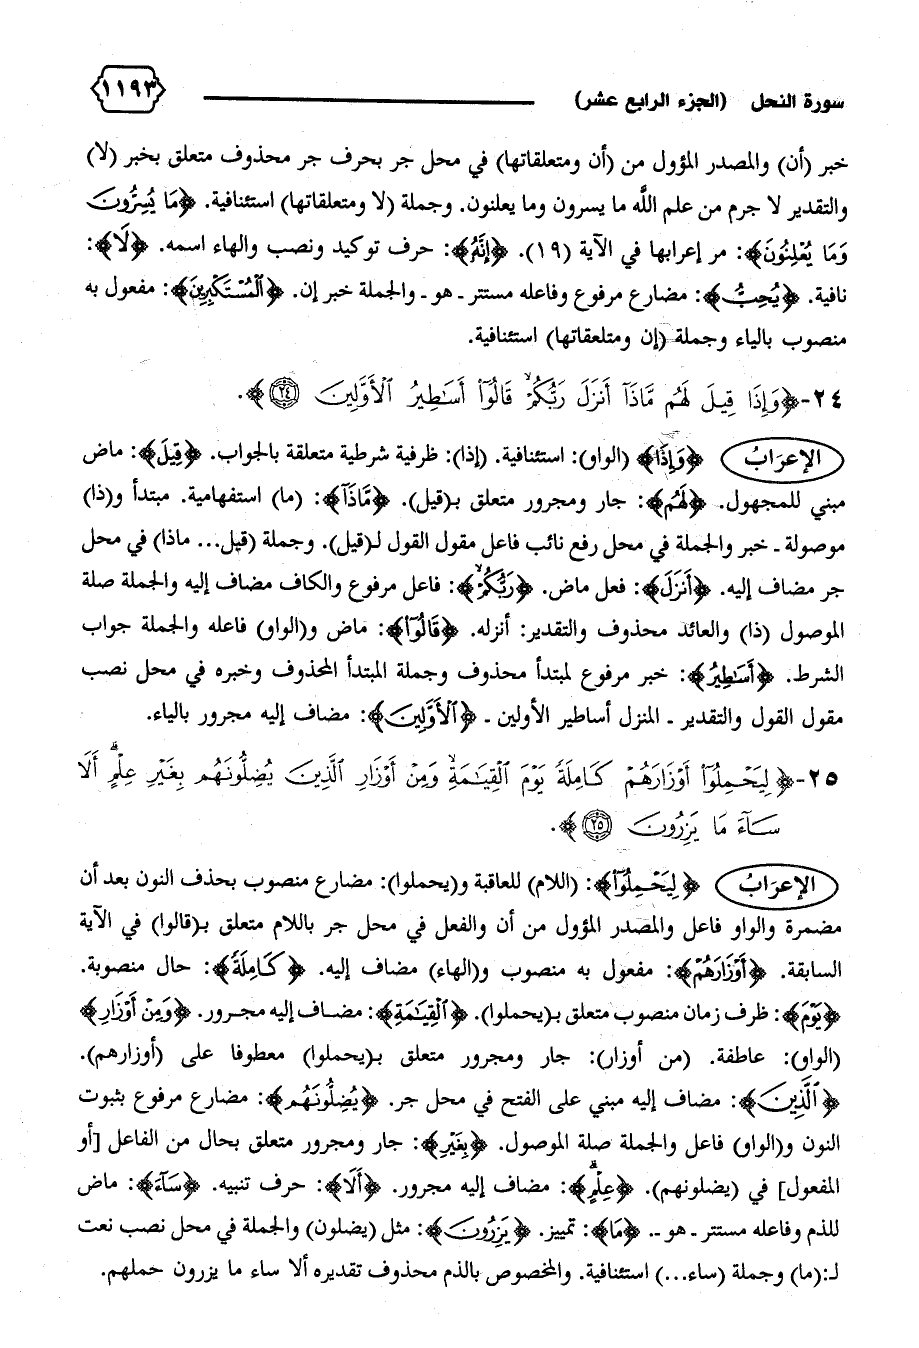 سورة النحل (الجزء الرابع عشر) ١١٩٣
خبر (أن) والمصدر المؤول من (أن ومتعلقاتها) في محل جر بحرف جر محذوف متعلق بخبر (لا)
والتقدير لا جرم من علم الله ما يسرون وما يعلنون. وجملة (لا ومتعلقاتها) استئنافية. ﴿مَا يُسِرُّونَ
وَمَا يُعْلِنُونَ﴾: مر إعرابها في الآية (١٩). ﴿إِنَّهُ﴾: حرف توكيد ونصب والهاء اسمه. ﴿لَا﴾:
نافية. ﴿يُحِبُّ﴾: مضارع مرفوع وفاعله مستتر ـ هو ـ والجملة خبر إن. ﴿الْمُسْتَكْبِرِينَ﴾: مفعول به
منصوب بالياء وجملة (إن ومتلعقاتها) استئنافية.
٢٤-﴿وَإِذَا قِيلَ لَهُم مَّاذَآ أَنزَلَ رَبُّكُمْ ۙ قَالُوٓا۟ أَسَـٰطِيرُ ٱلْأَوَّلِينَ ٢٤﴾.
الإعرَابُ ﴿وَإِذَا﴾ (الواو): استئنافية. (إذا): ظرفية شرطية متعلقة بالجواب. ﴿قِيلَ﴾: ماض
مبني للمجهول. ﴿لَهُم﴾: جار ومجرور متعلق بـ(قيل). ﴿مَّاذَآ﴾: (ما) استفهامية. مبتدأ و(ذا)
موصولة ـ خبر والجملة في محل رفع نائب فاعل مقول القول لـ(قيل). وجملة (قيل... ماذا) في محل
جر مضاف إليه. ﴿أَنزَلَ﴾: فعل ماض. ﴿رَبُّكُمْ ۙ﴾: فاعل مرفوع والكاف مضاف إليه والجملة صلة
الموصول (ذا) والعائد محذوف والتقدير: أنزله. ﴿قَالُوٓا۟﴾: ماض و(الواو) فاعله والجملة جواب
الشرط. ﴿أَسَـٰطِيرُ﴾: خبر مرفوع لمبتدأ محذوف وجملة المبتدأ المحذوف وخبره في محل نصب
مقول القول والتقدير ـ المنزل أساطير الأولين ـ ﴿ٱلْأَوَّلِينَ﴾: مضاف إليه مجرور بالياء.
٢٥-﴿لِيَحْمِلُوٓا۟ أَوْزَارَهُمْ كَامِلَةً يَوْمَ ٱلْقِيَـٰمَةِ ۙ وَمِنْ أَوْزَارِ ٱلَّذِينَ يُضِلُّونَهُم بِغَيْرِ عِلْمٍ ۗ أَلَا
سَآءَ مَا يَزِرُونَ ٢٥﴾.
الإعرَابُ ﴿لِيَحْمِلُوٓا۟﴾: (اللام) للعاقبة و(يحملوا): مضارع منصوب بحذف النون بعد أن
مضمرة والواو فاعل والمصدر المؤول من أن والفعل في محل جر باللام متعلق بـ(قالوا) في الآية
السابقة. ﴿أَوْزَارَهُمْ﴾: مفعول به منصوب و(الهاء) مضاف إليه. ﴿كَامِلَةً﴾: حال منصوبة.
﴿يَوْمَ﴾: ظرف زمان منصوب متعلق بـ(يحملوا). ﴿ٱلْقِيَـٰمَةِ﴾: مضاف إليه مجرور. ﴿وَمِنْ أَوْزَارِ﴾
(الواو): عاطفة. (من أوزار): جار ومجرور متعلق بـ(يحملوا) معطوفا على (أوزارهم).
﴿ٱلَّذِينَ﴾: مضاف إليه مبني على الفتح في محل جر. ﴿يُضِلُّونَهُم﴾: مضارع مرفوع بثبوت
النون و(الواو) فاعل والجملة صلة الموصول. ﴿بِغَيْرِ﴾: جار ومجرور متعلق بحال من الفاعل [أو
المفعول] في (يضلونهم). ﴿عِلْمٍ ۗ﴾: مضاف إليه مجرور. ﴿أَلَا﴾: حرف تنبيه. ﴿سَآءَ﴾: ماض
للذم وفاعله مستتر ـ هو ـ. ﴿مَا﴾: تمييز. ﴿يَزِرُونَ﴾: مثل (يضلون) والجملة في محل نصب نعت
لـ:(ما) وجملة (ساء...) استئنافية. والمخصوص بالذم محذوف تقديره ألا ساء ما يزرون حملهم.